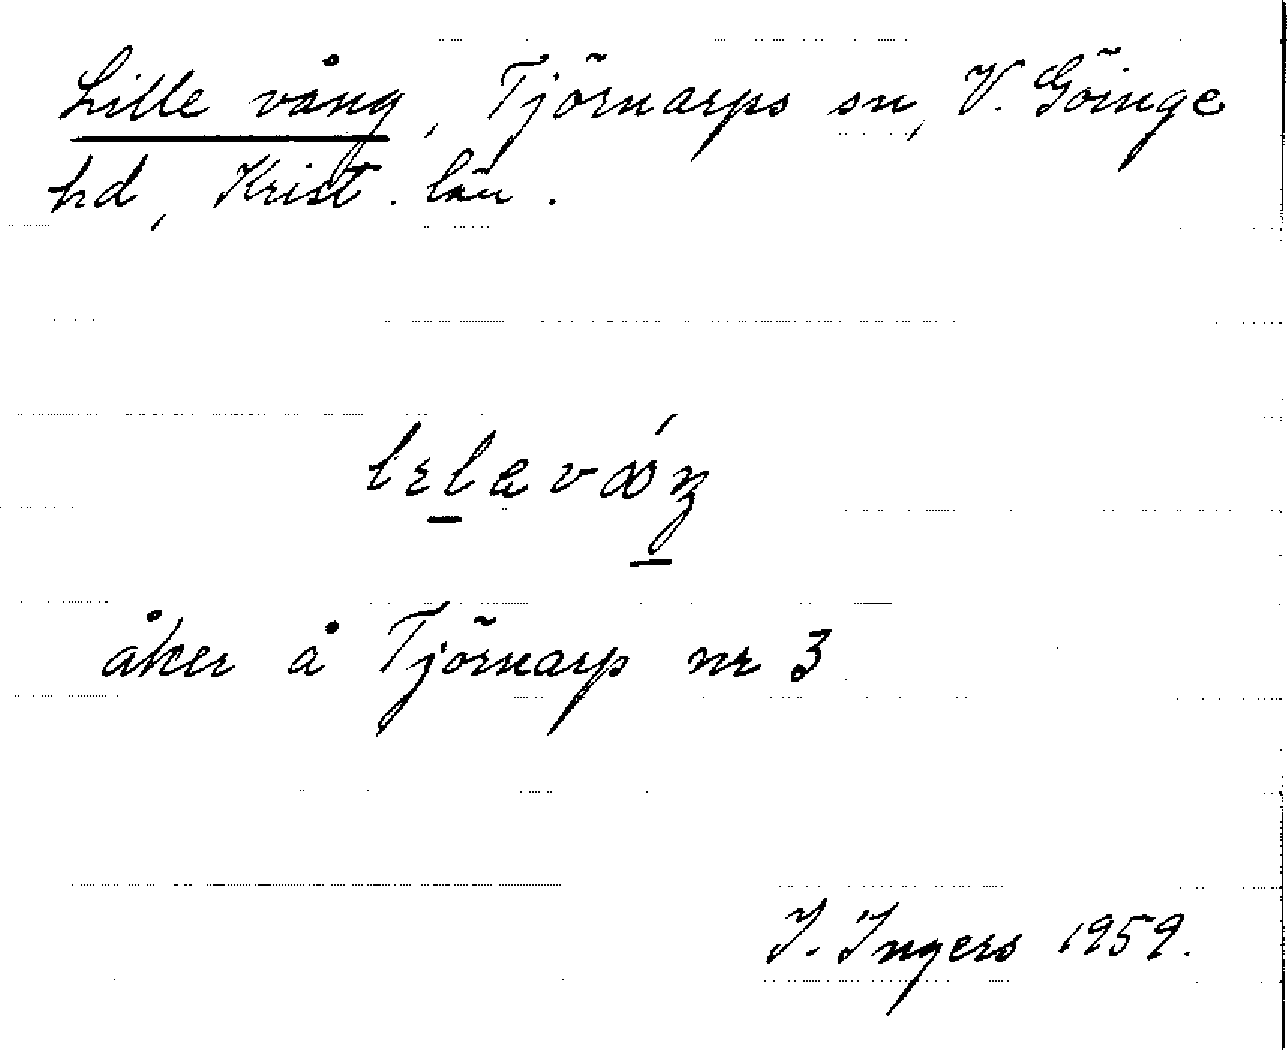 Lille vång, Tjörnarps sn, V. Göinge
hd, Krist. län.
åker å Tjörnarp nr 3
I. Ingers 1959.